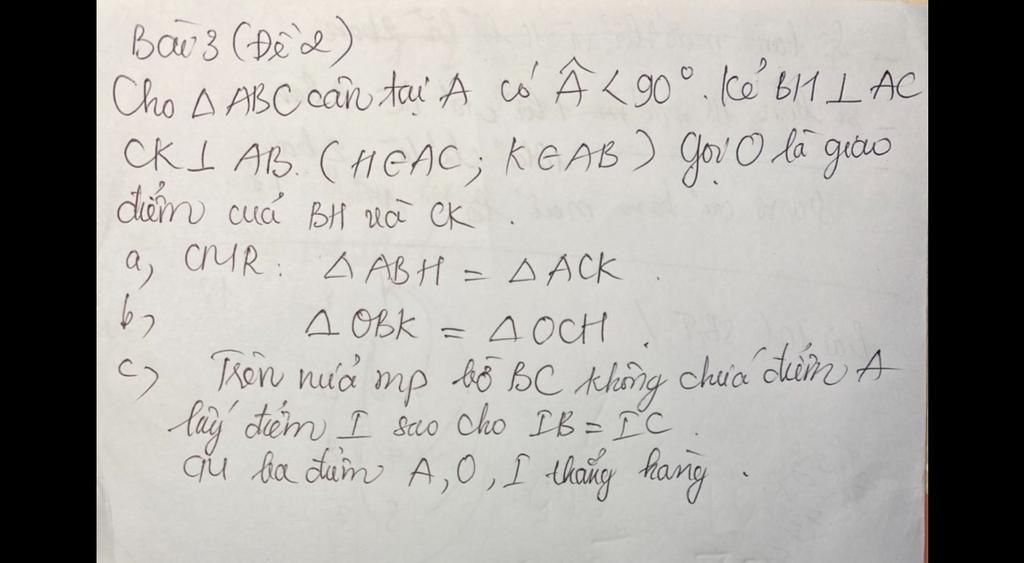 Bài 3 (Đề 2)
Cho △ ABC cân tại A có Â < 90°. Kẻ BH ⊥ AC
CK ⊥ AB. (H ∈ AC; K ∈ AB) Gọi O là giao
điểm của BH và CK.
a, CMR: △ ABH = △ ACK.
b, △ OBK = △ OCH.
c, Trên nửa mp bờ BC không chứa điểm A
lấy điểm I sao cho IB = IC.
CM ba điểm A, O, I thẳng hàng.